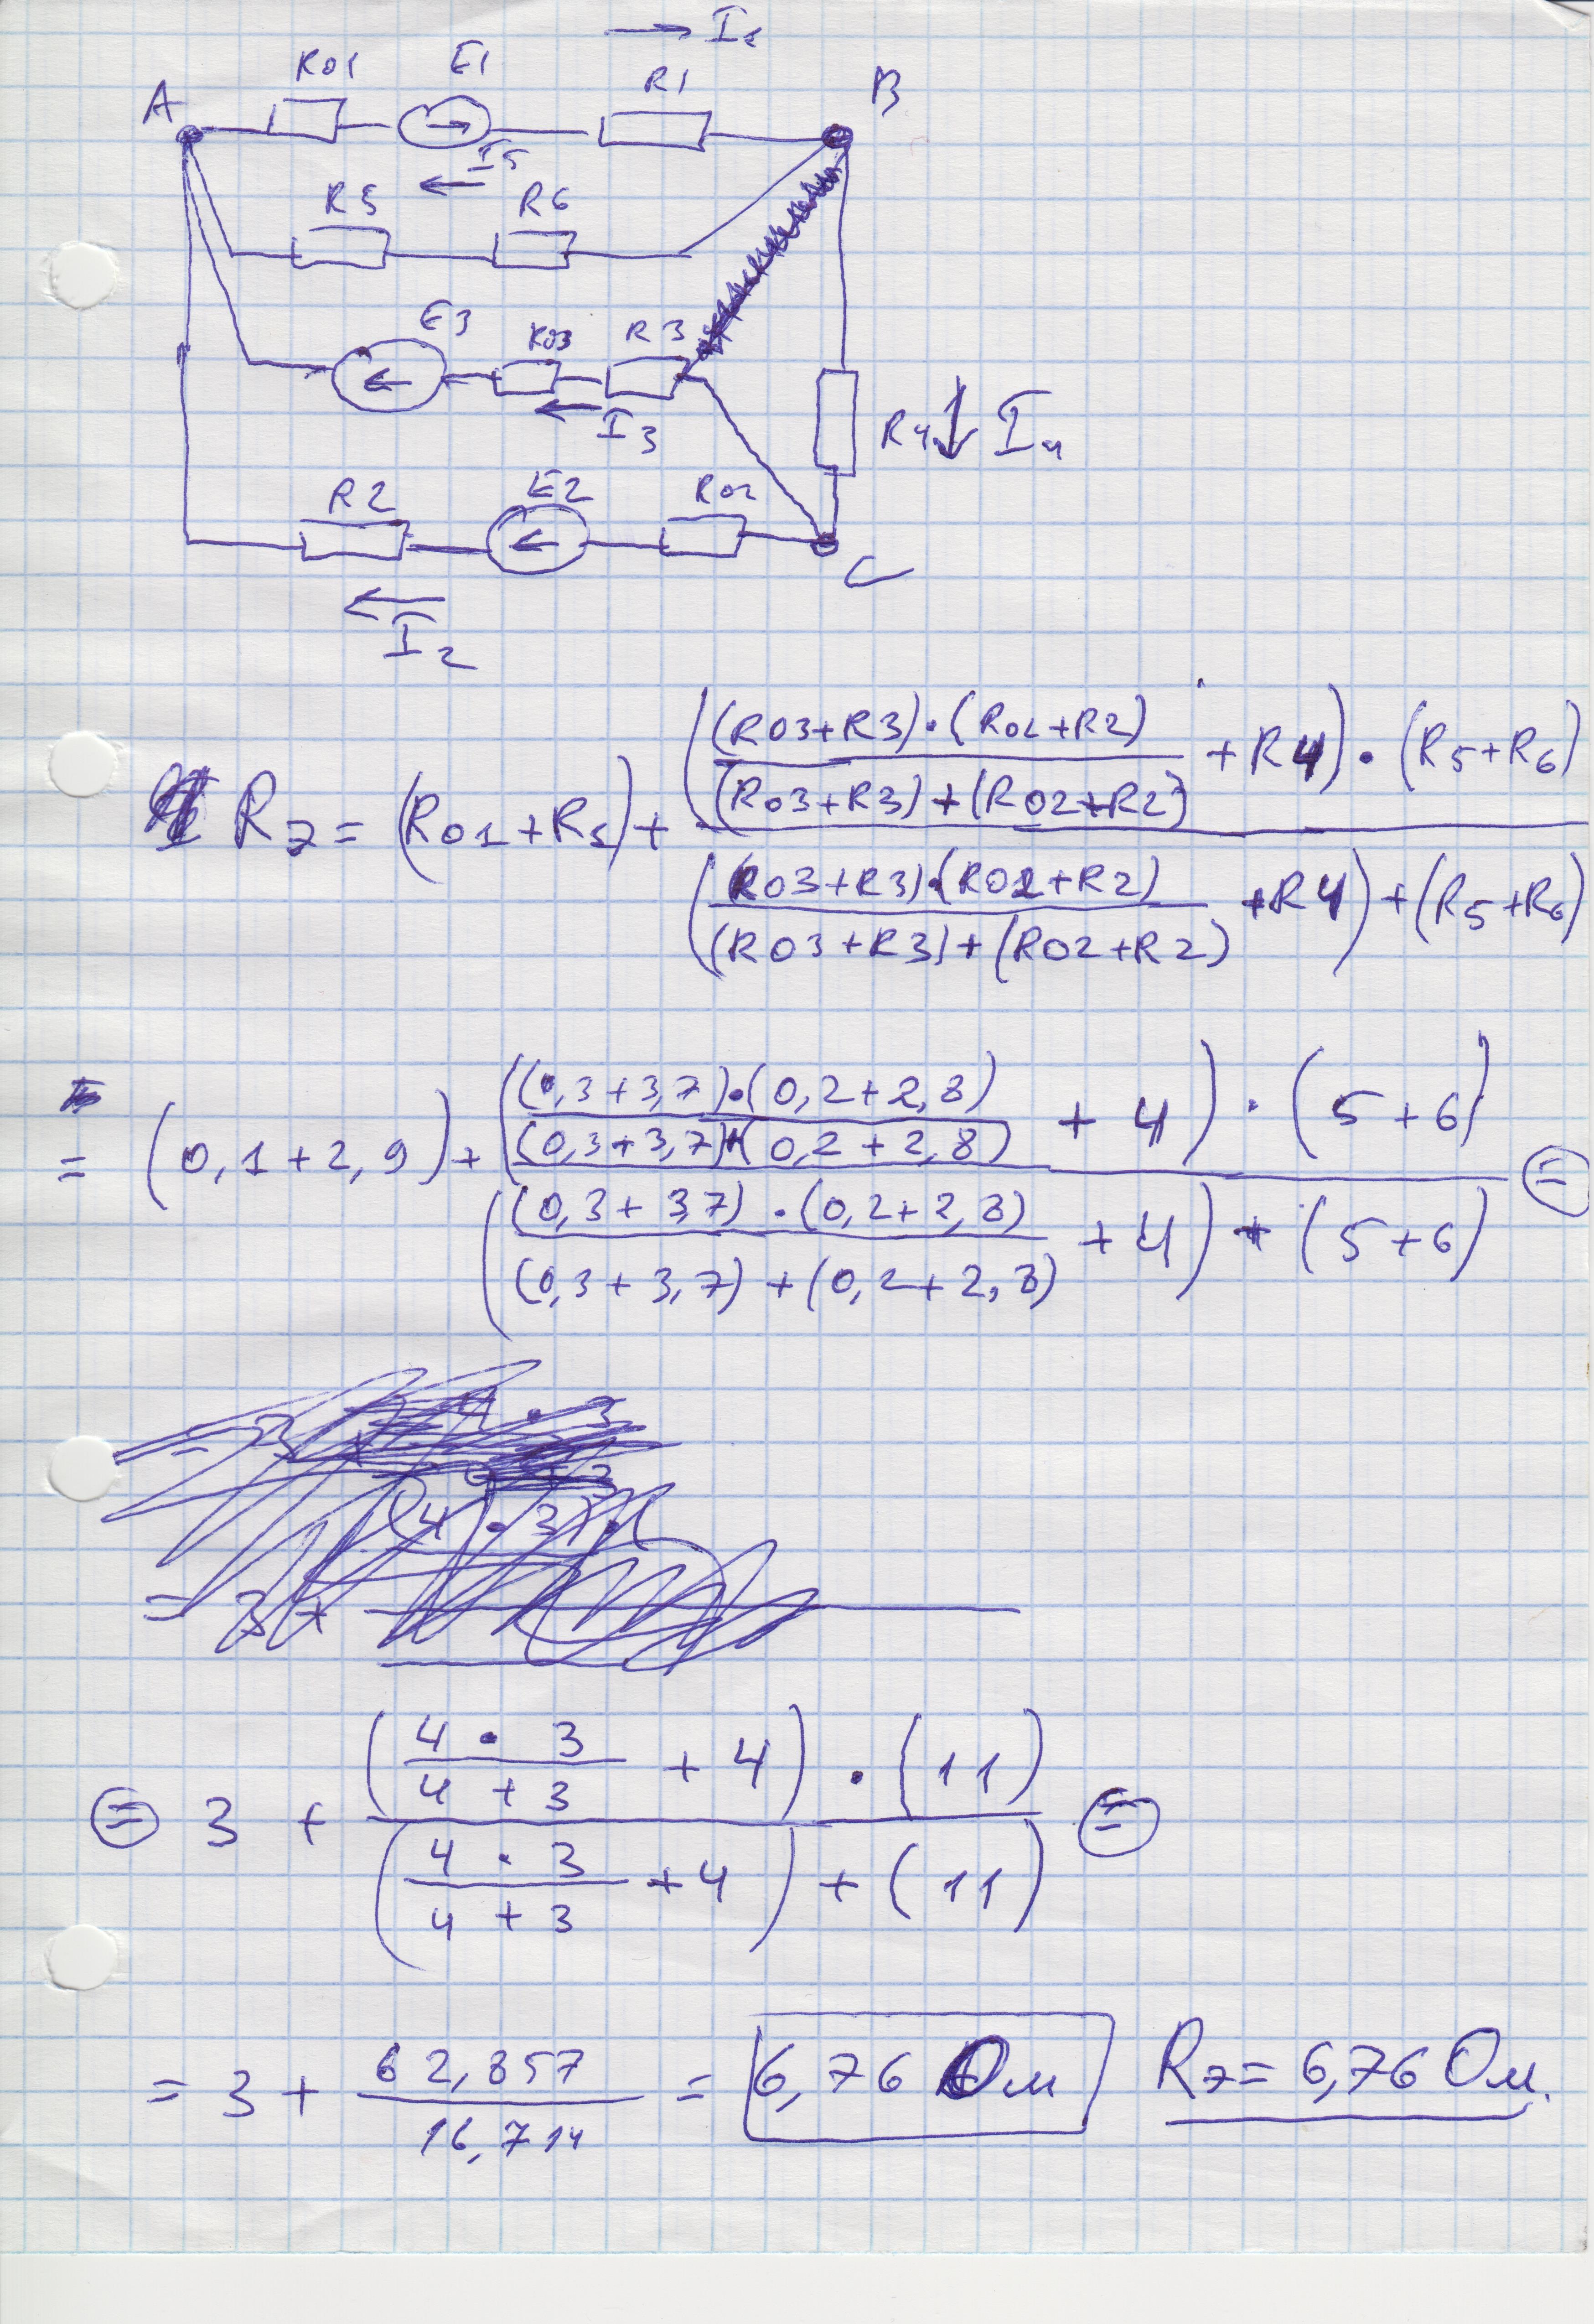 → I₁
A R01 E1 R1 B
I5
R5 R6
E3 R03 R3
R4 ↓ I₄
I3
R2 E2 R02
C
← I₂
R₇ = (R01 + R1) + (((R03+R3)·(R02+R2))/((R03+R3)+(R02+R2)) + R4)·(R5+R6) / (((R03+R3)·(R02+R2))/((R03+R3)+(R02+R2)) + R4)+(R5+R6)
= (0,1+2,9) + (((0,3+3,7)·(0,2+2,8))/((0,3+3,7)+(0,2+2,8)) + 4)·(5+6) / (((0,3+3,7)·(0,2+2,8))/((0,3+3,7)+(0,2+2,8)) + 4)+(5+6) =
= 3 + ((4·3)/(4+3) + 4)·(11) / ((4·3)/(4+3) + 4)+(11) =
= 3 + 62,857/16,714 = 6,76 Ом R₇ = 6,76 Ом.